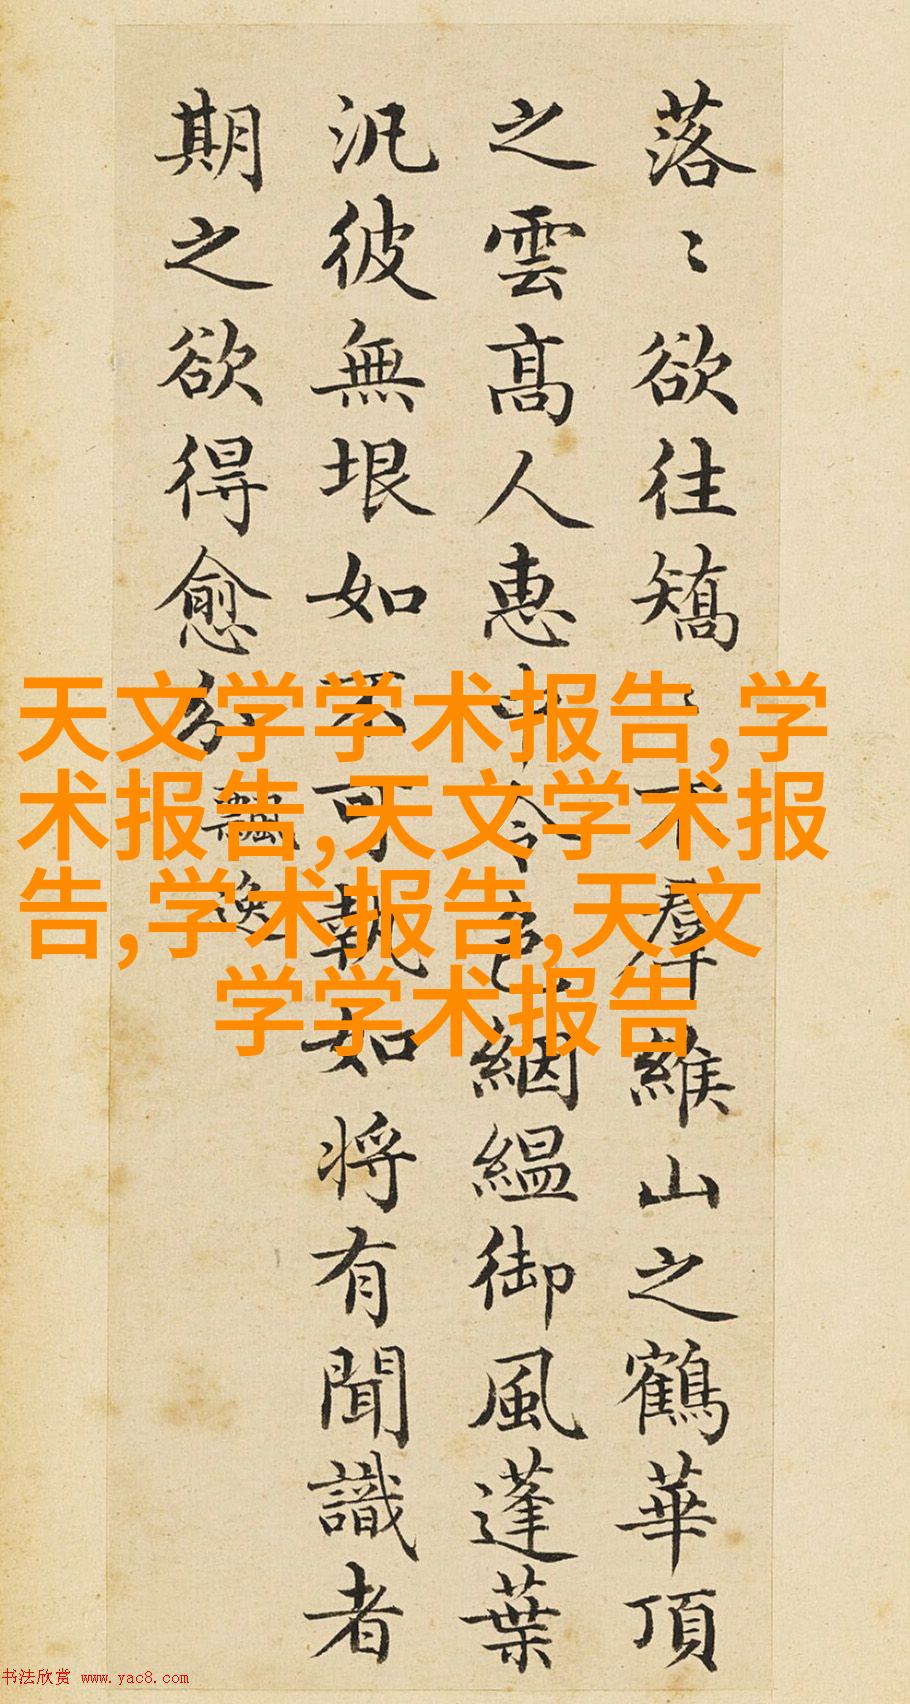 落〻欲往矯〻不羣緱山之鶴華頂
之雲髙人惠中令色絪緼御風蓬葉
汎彼無垠如不可執如将有聞識者
期之欲得愈分
飄逸
天文学学术报告,学
术报告,天文学术报
告,学术报告,天文
学学术报告
书法欣赏 www.yac8.com